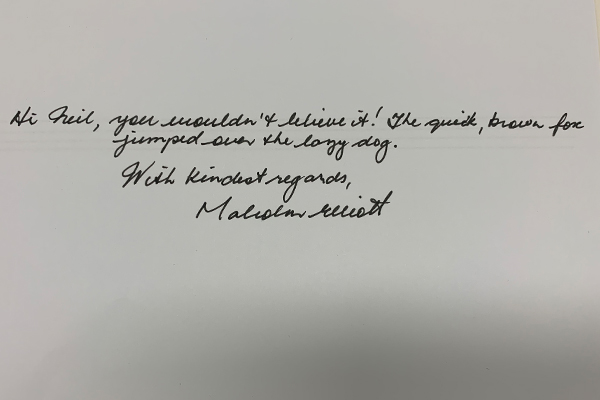 Hi Neil, you wouldn't believe it! The quick, brown fox
jumped over the lazy dog.
With kindest regards,
Malcolm Elliott